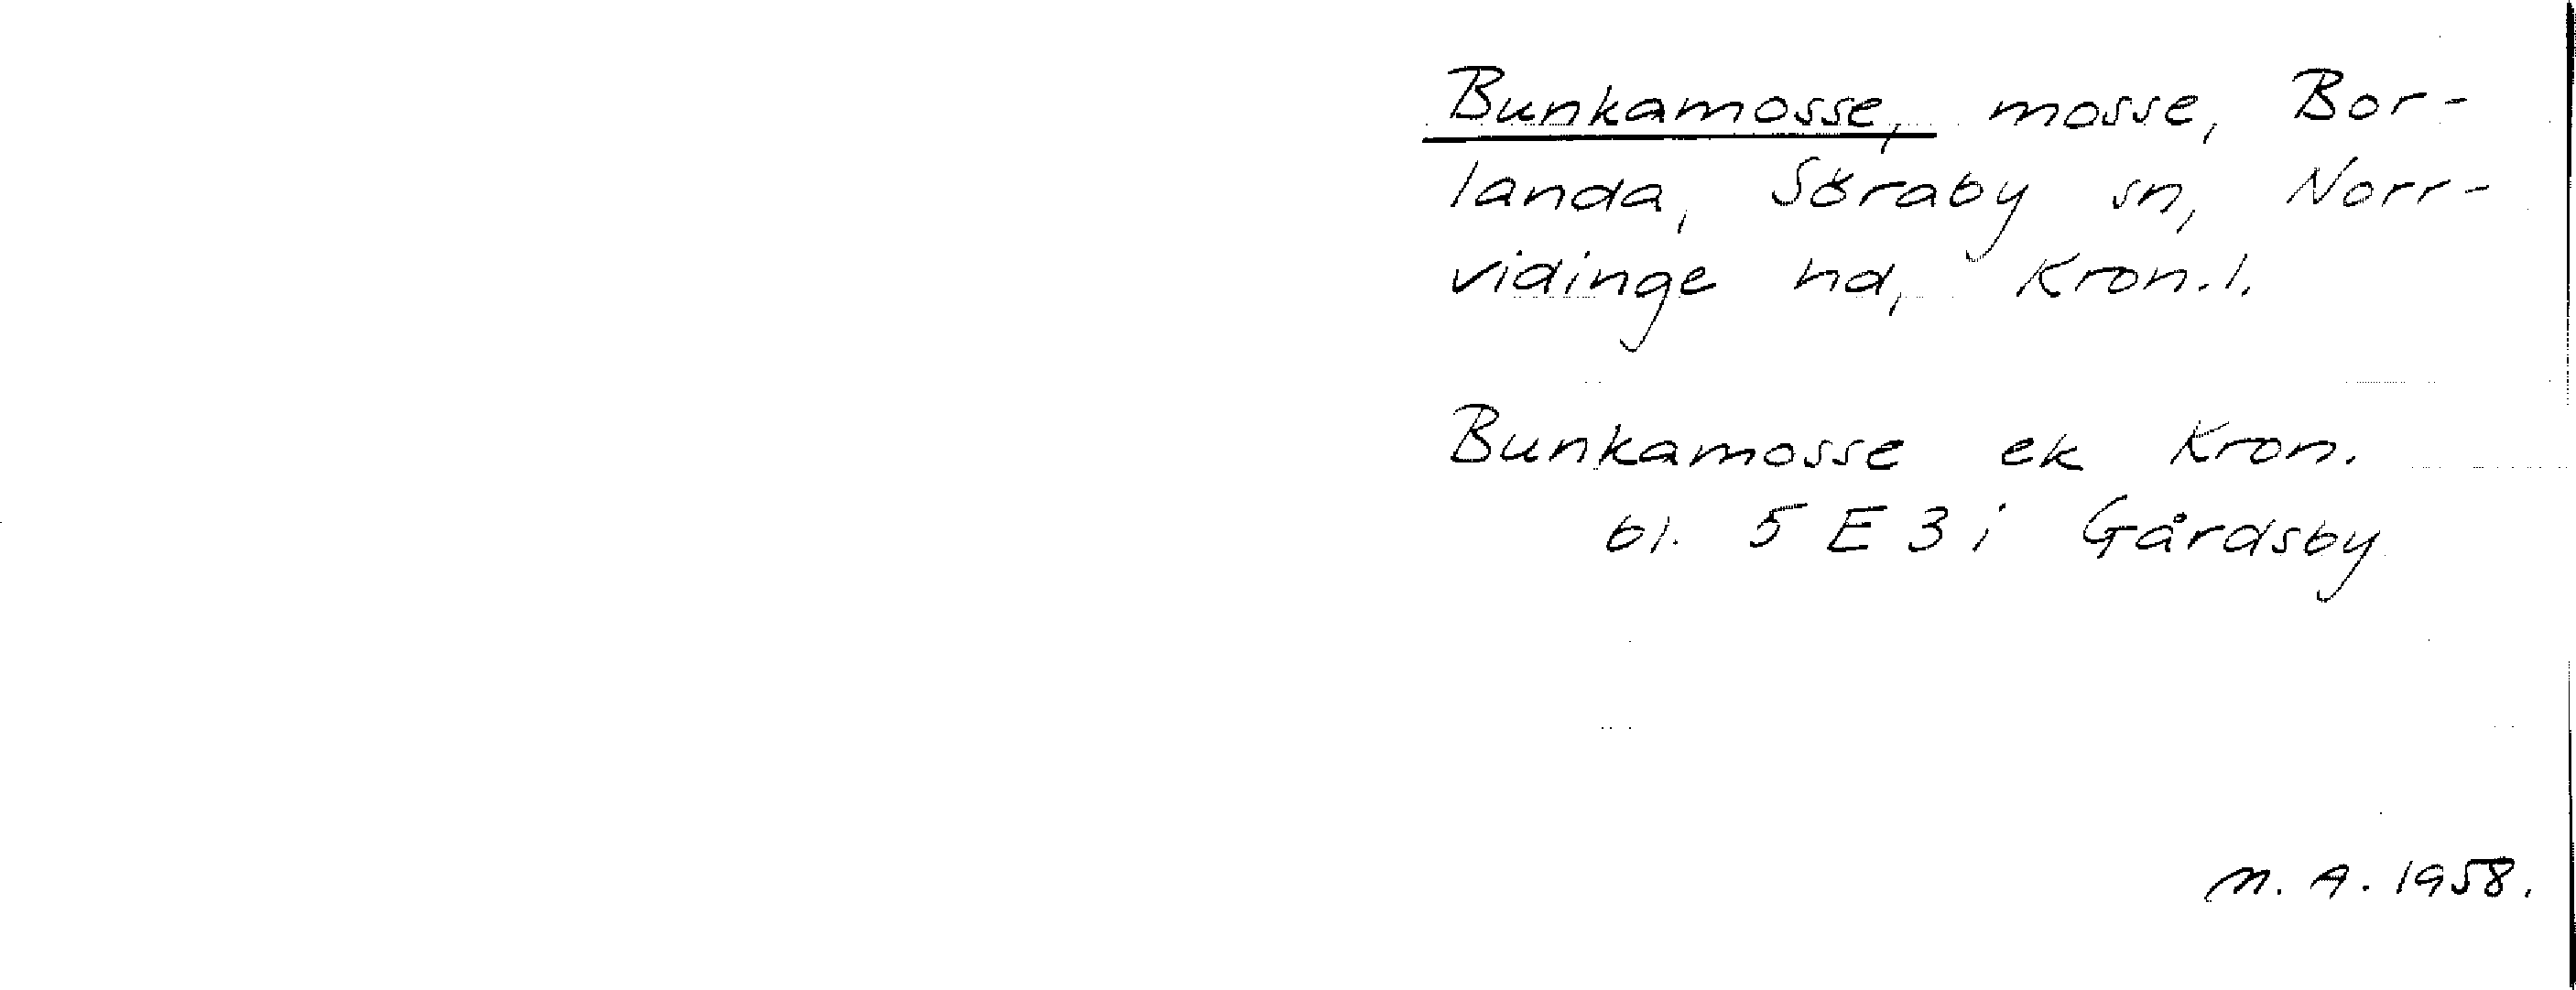 Bunkamosse, mosse, Bor-
landa, Söraby sn, Norr-
vidinge hd, Kron.l.
Bunkamosse ek Kron.
bl. 5 E 3 i Gårdsby
M. A. 1958.